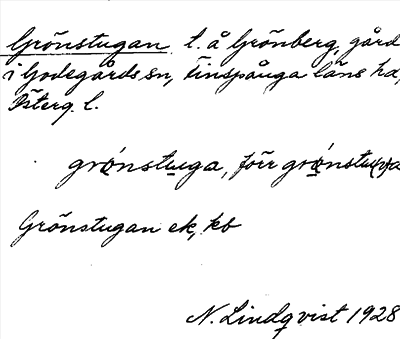 Grönstugan t. å Grönberg, gård
i Godegårds sn, Finspånga läns hd,
Österg. l.
grǿnstuga, förr grǿnstu(v)a
Grönstugan ek, kb
N. Lindqvist 1928